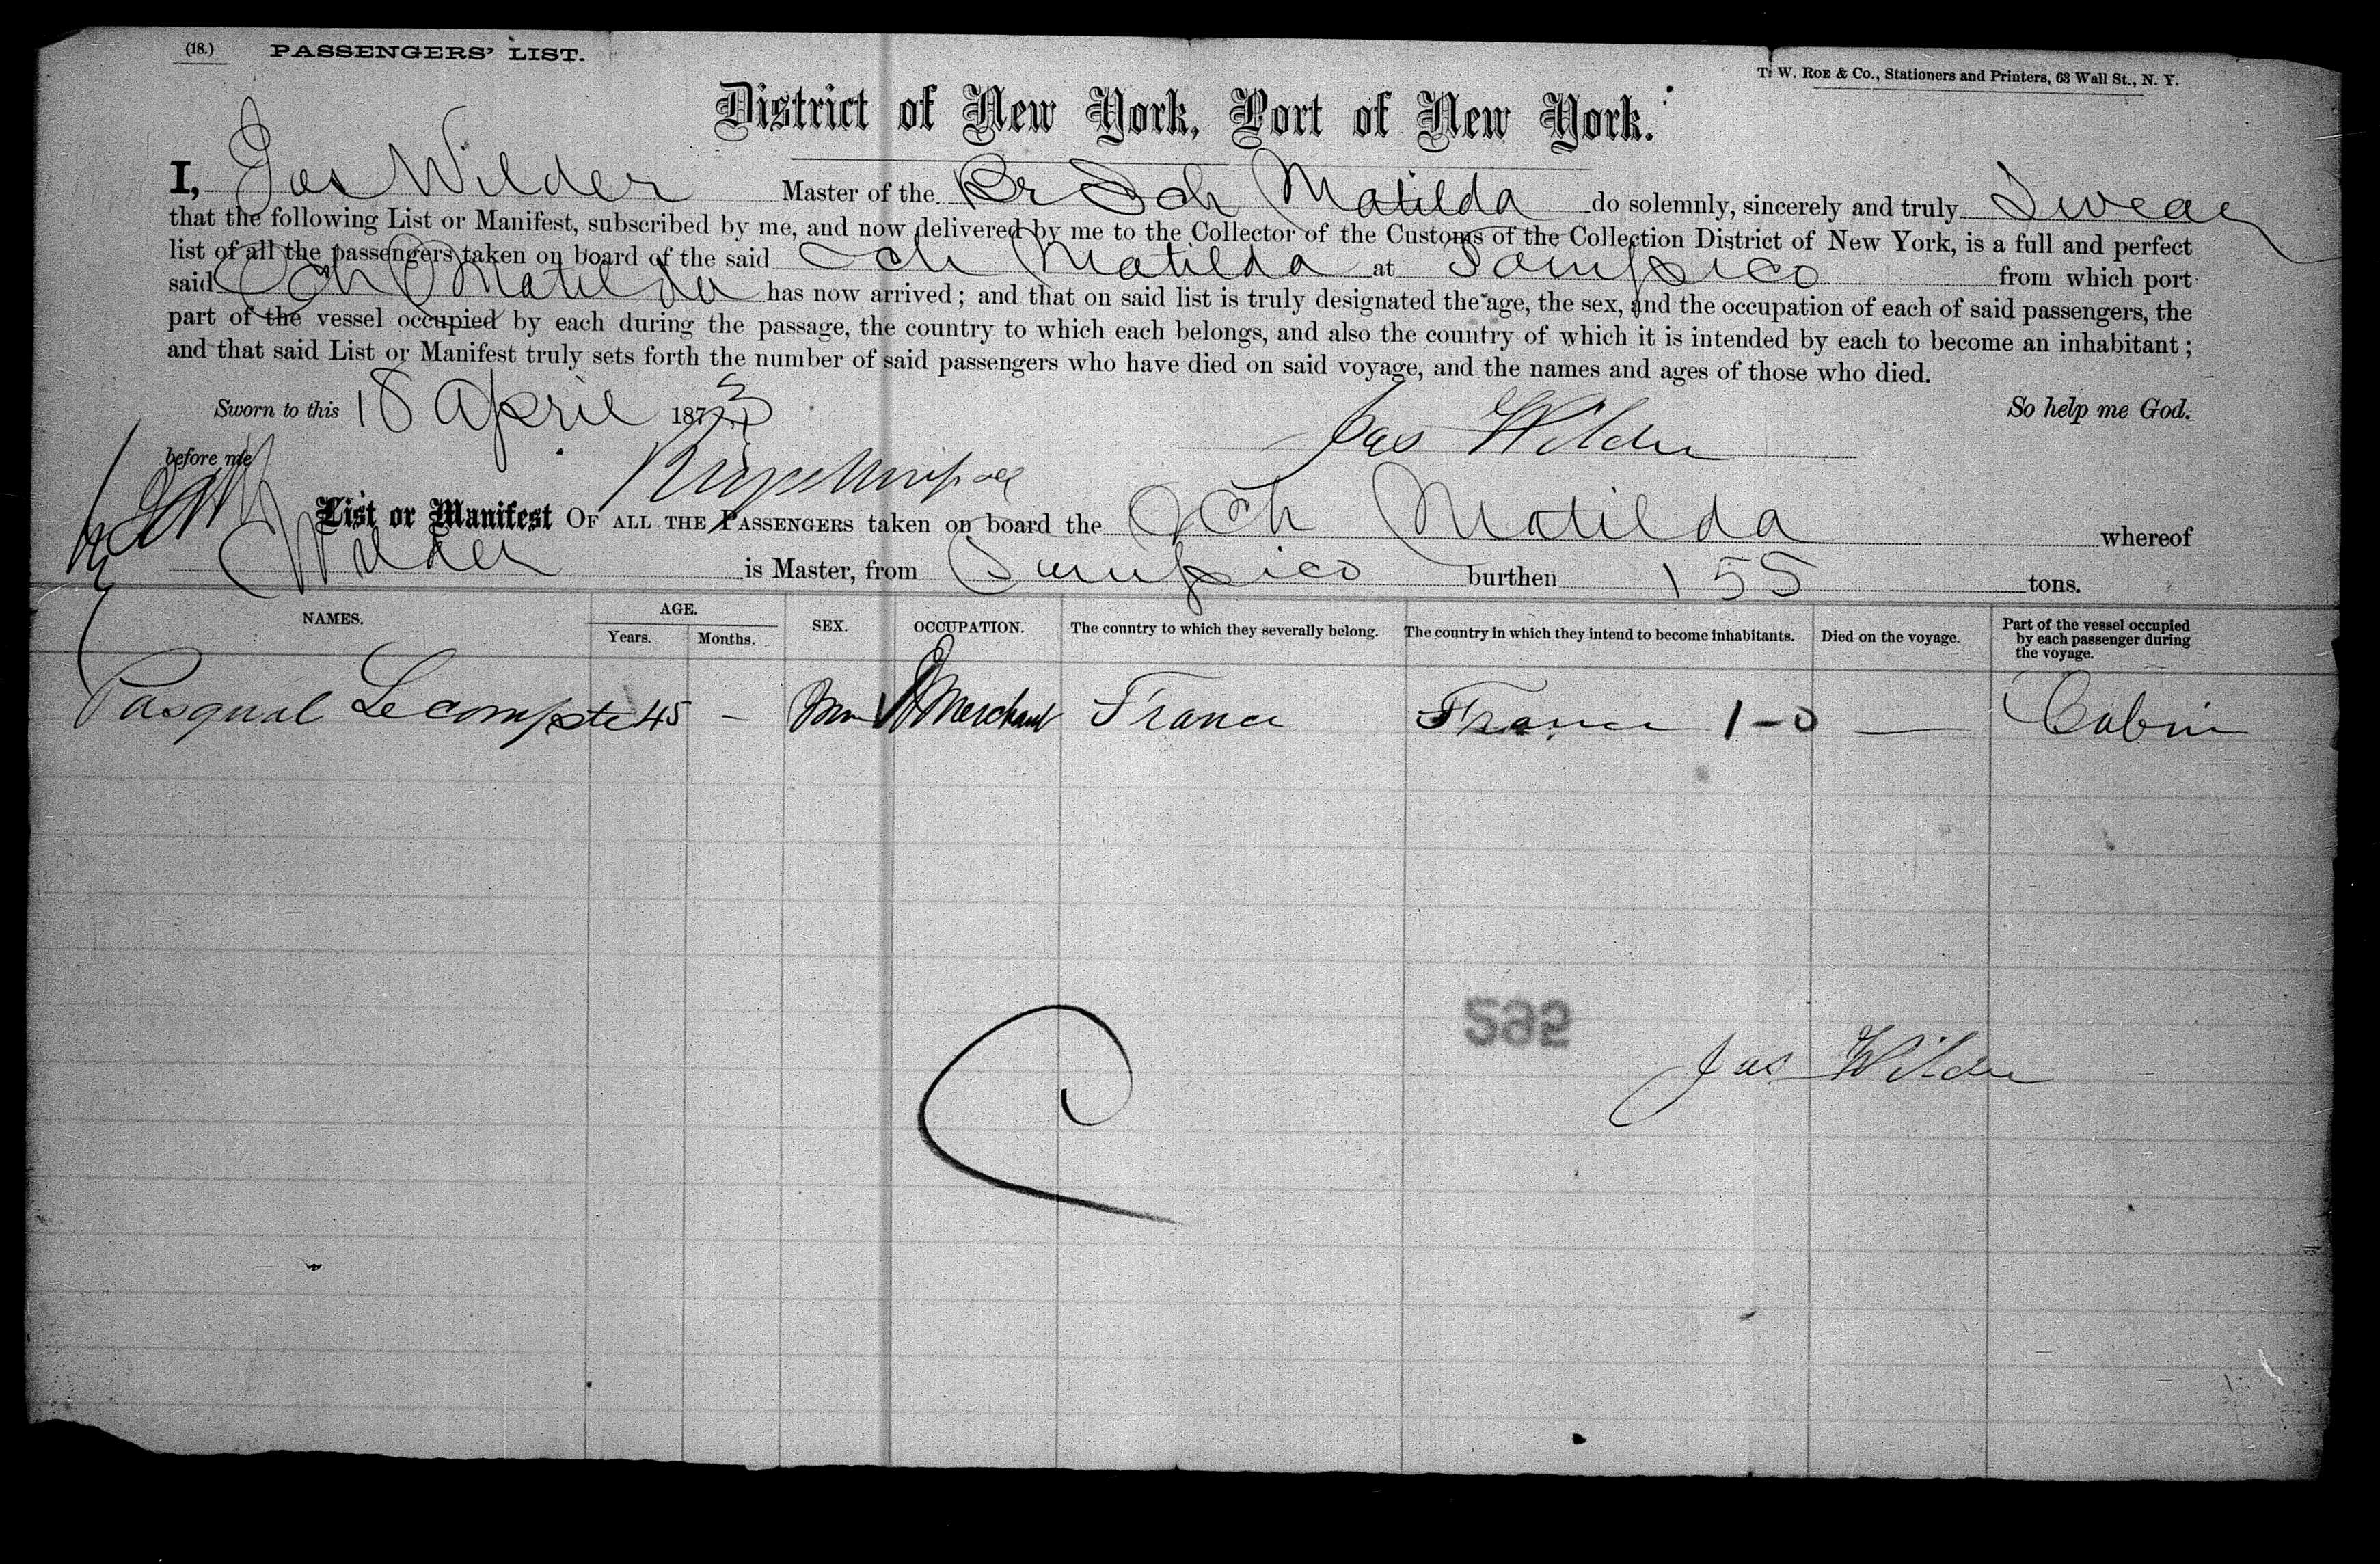 (18.) PASSENGERS' LIST.
T. W. ROE & Co., Stationers and Printers, 63 Wall St., N. Y.
District of New York, Port of New York.
I, Jas Wilder Master of the Br Sch Matilda do solemnly, sincerely and truly Swear
that the following List or Manifest, subscribed by me, and now delivered by me to the Collector of the Customs of the Collection District of New York, is a full and perfect
list of all the passengers taken on board of the said Sch Matilda at Tampico from which port
said Sch Matilda has now arrived; and that on said list is truly designated the age, the sex, and the occupation of each of said passengers, the
part of the vessel occupied by each during the passage, the country to which each belongs, and also the country of which it is intended by each to become an inhabitant;
and that said List or Manifest truly sets forth the number of said passengers who have died on said voyage, and the names and ages of those who died.
Sworn to this 18 April 1873 So help me God.
Jas Wilder
before me
List or Manifest OF ALL THE PASSENGERS taken on board the Sch Matilda whereof
Wilder is Master, from Tampico burthen 155 tons.
NAMES. AGE. Years. Months. SEX. OCCUPATION. The country to which they severally belong. The country in which they intend to become inhabitants. Died on the voyage. Part of the vessel occupied by each passenger during the voyage.
Pasqual Lecompte 45 - Merchant France France 1-0 — Cabin
Jas Wilder